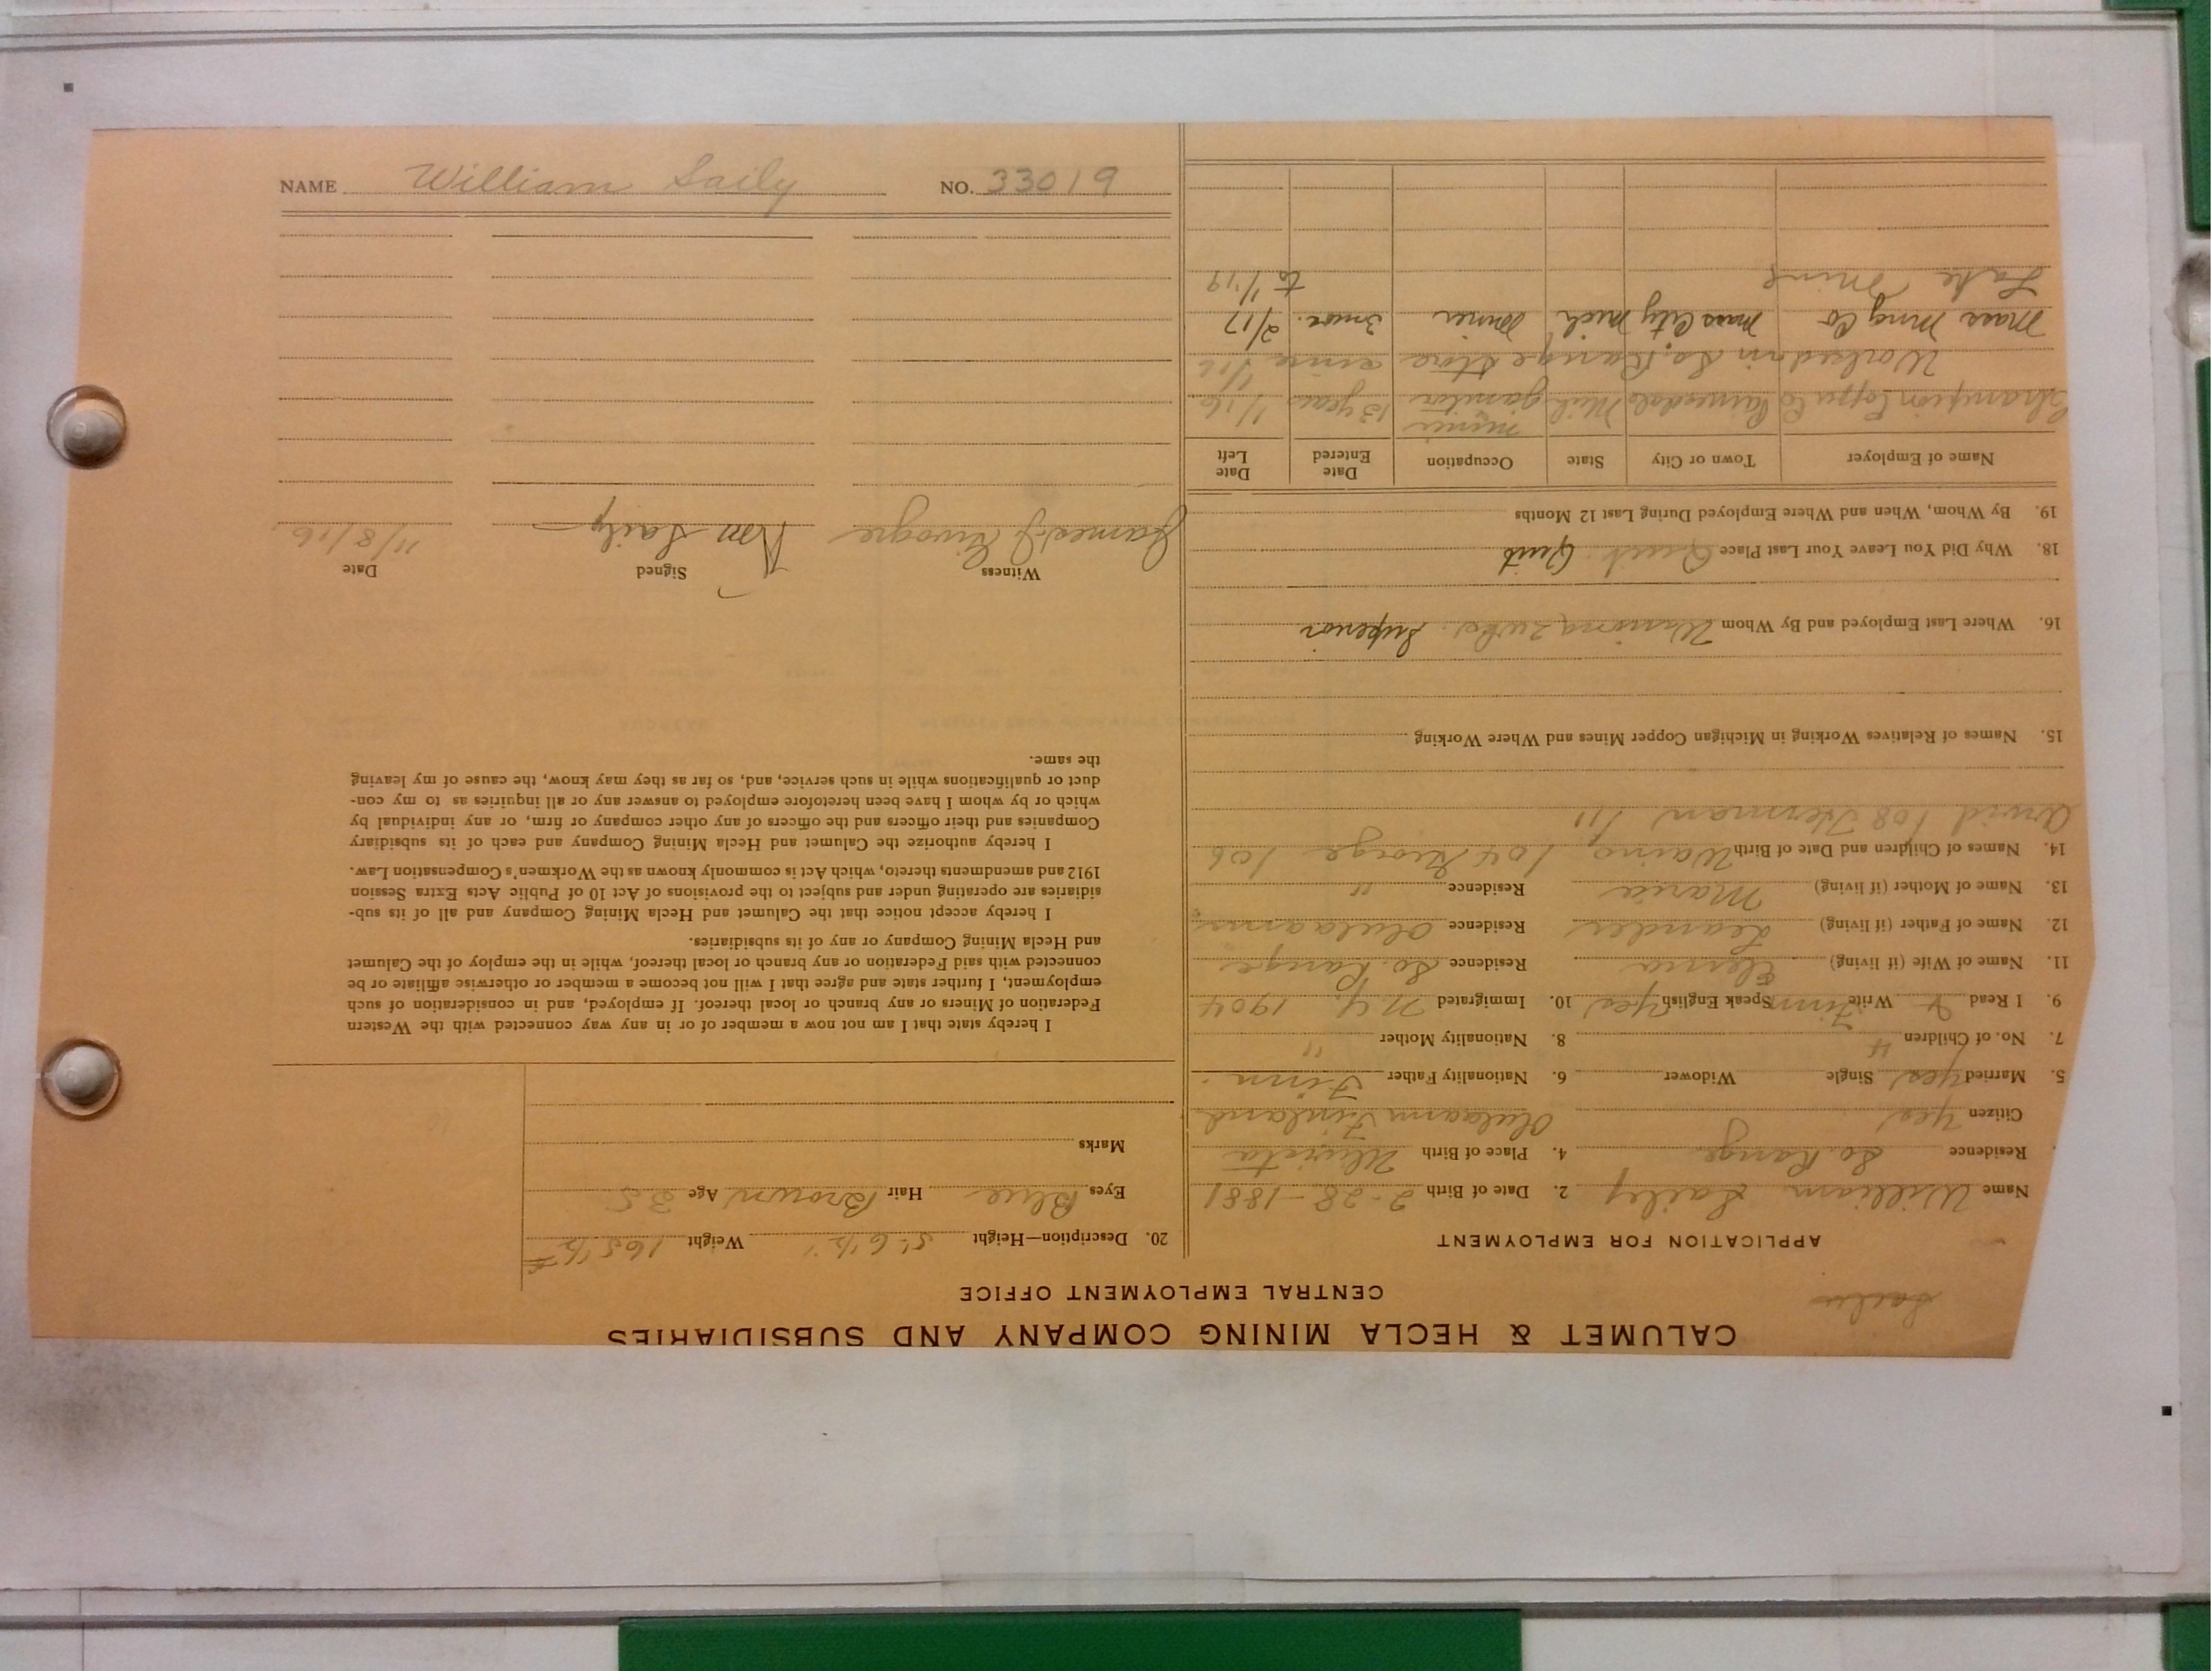 NAME William Saily NO. 33019
CALUMET & HECLA MINING COMPANY AND SUBSIDIARIES
CENTRAL EMPLOYMENT OFFICE
APPLICATION FOR EMPLOYMENT
Name William Saily 2. Date of Birth 2-28-1881
Residence So. Range 4. Place of Birth
Citizen Yes Finland
5. Married yes Single Widower 6. Nationality Father Finn.
7. No. of Children 4 8. Nationality Mother "
9. I Read & Write Finn Speak English Yes 10. Immigrated N.Y. 1904
11. Name of Wife (if living) Residence So. Range
12. Name of Father (if living) Leander Residence
13. Name of Mother (if living) Maria Residence "
14. Names of Children and Date of Birth Waino 1/04 George 1/06
Arvid 1/08 Herman 1/11
15. Names of Relatives Working in Michigan Copper Mines and Where Working
16. Where Last Employed and By Whom Superior
18. Why Did You Leave Your Last Place Quit Quit
19. By Whom, When and Where Employed During Last 12 Months
Name of Employer Town or City State Occupation Date Entered Date Left
miner
Champion Copper Co Painesdale Mich janitor 13 years 1/16
Worked in So. Range Store since 1/16
Mass Mng Co Mass City Mich miner 3 mos. 2/17
Lake Mine to 1/19
20. Description—Height 5' 6 1/2" Weight 165 1/2 #
Eyes Blue Hair Brown Age 35
Marks
I hereby state that I am not now a member of or in any way connected with the Western
Federation of Miners or any branch or local thereof. If employed, and in consideration of such
employment, I further state and agree that I will not become a member or otherwise affiliate or be
connected with said Federation or any branch or local thereof, while in the employ of the Calumet
and Hecla Mining Company or any of its subsidiaries.
I hereby accept notice that the Calumet and Hecla Mining Company and all of its sub-
sidiaries are operating under and subject to the provisions of Act 10 of Public Acts Extra Session
1912 and amendments thereto, which Act is commonly known as the Workmen's Compensation Law.
I hereby authorize the Calumet and Hecla Mining Company and each of its subsidiary
Companies and their officers and the officers of any other company or firm, or any individual by
which or by whom I have been heretofore employed to answer any or all inquiries as to my con-
duct or qualifications while in such service, and, so far as they may know, the cause of my leaving
the same.
Witness Signed Date
James J Wm Saily 11/8/16